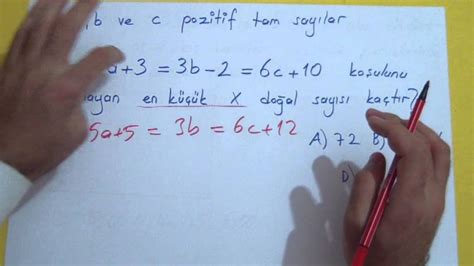 b ve c pozitif tam sayılar
+3 = 3b-2 = 6c+10 koşulunu
en küçük X doğal sayısı kaçtır?
5a+5 = 3b = 6c+12
A) 72 B)
D)